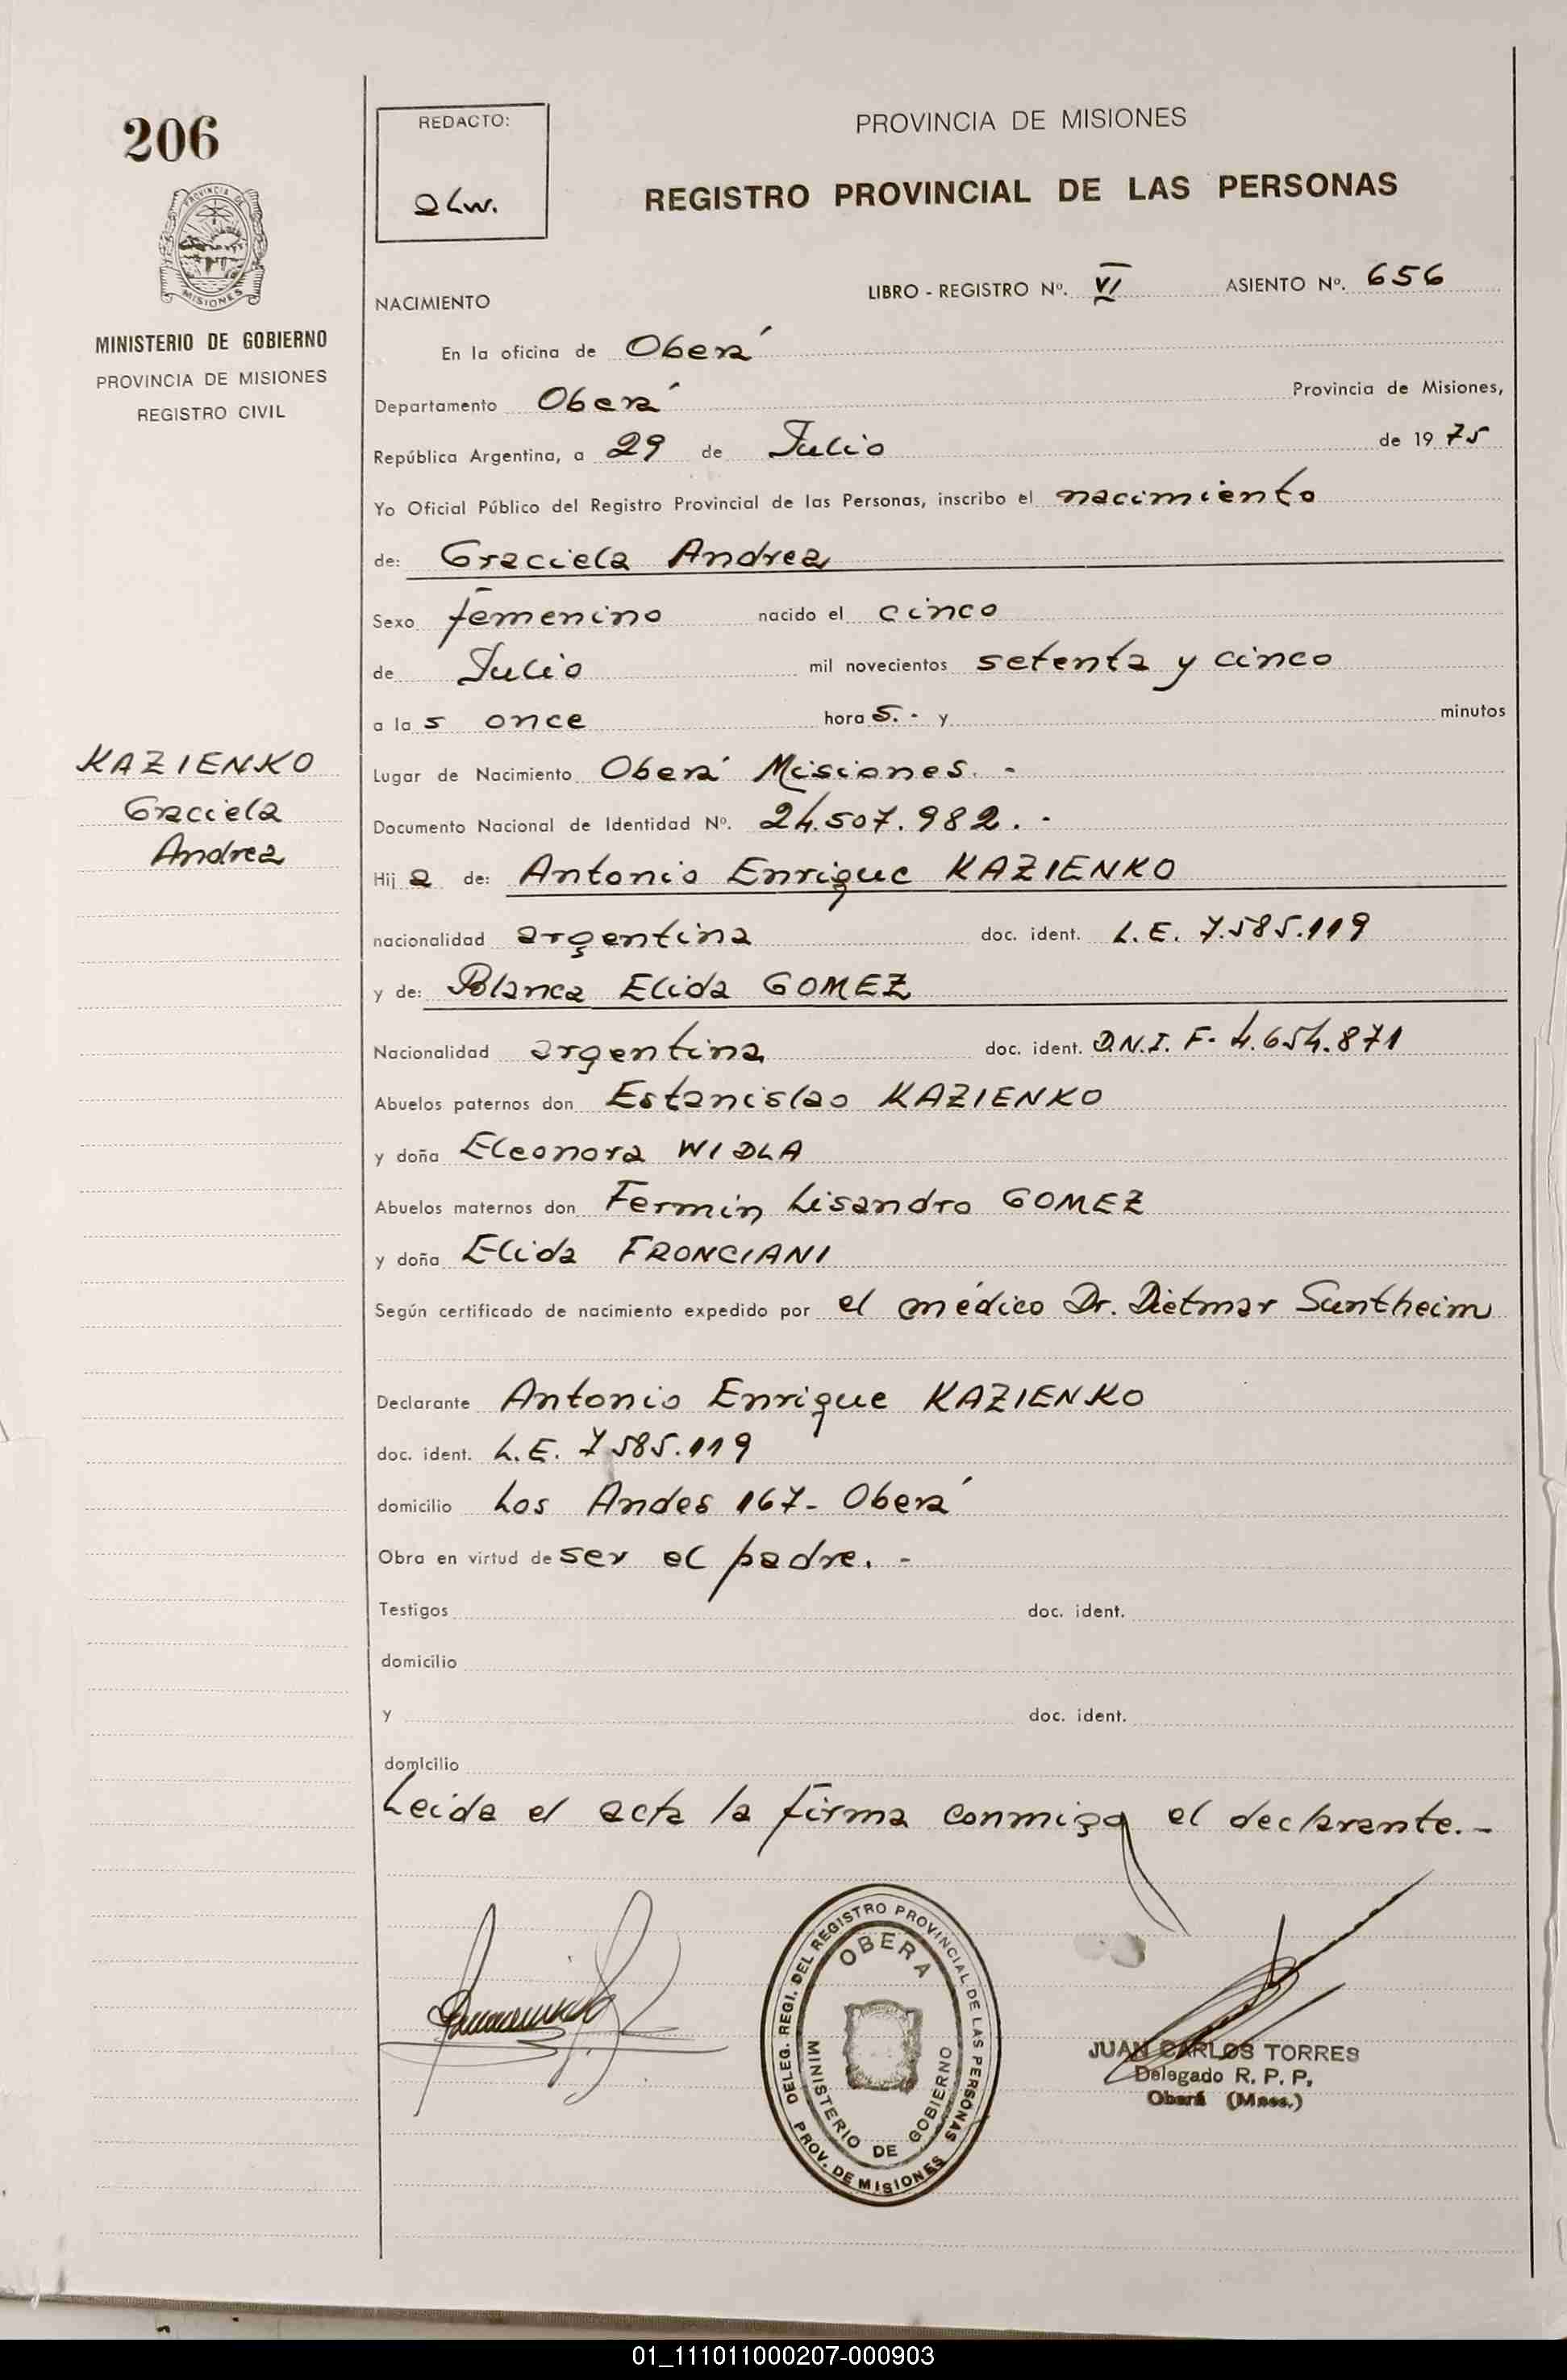 206
REDACTO:
PROVINCIA DE MISIONES
REGISTRO PROVINCIAL DE LAS PERSONAS
MISIONES
MINISTERIO DE GOBIERNO
PROVINCIA DE MISIONES
REGISTRO CIVIL
NACIMIENTO LIBRO - REGISTRO Nº. VI ASIENTO Nº. 656
En la oficina de Oberá
Departamento Oberá Provincia de Misiones,
República Argentina, a 29 de Julio de 19 75
Yo Oficial Público del Registro Provincial de las Personas, inscribo el nacimiento
de: Graciela Andrea
Sexo femenino nacido el cinco
de Julio mil novecientos setenta y cinco
a la s once hora s.- y minutos
KAZIENKO
Graciela
Andrea
Lugar de Nacimiento Oberá Misiones.-
Documento Nacional de Identidad Nº. 24.507.982.-
Hij a de: Antonio Enrique KAZIENKO
nacionalidad argentina doc. ident. L.E. 7.585.119
y de: Blanca Elida GOMEZ
Nacionalidad argentina doc. ident. D.N.I. F- 4.654.871
Abuelos paternos don Estanislao KAZIENKO
y doña Eleonora WIDLA
Abuelos maternos don Fermin Lisandro GOMEZ
y doña Elida FRONCIANI
Según certificado de nacimiento expedido por el médico Dr. Dietmar Suntheim
Declarante Antonio Enrique KAZIENKO
doc. ident. L.E. 7585.119
domicilio Los Andes 167- Oberá
Obra en virtud de ser el padre.-
Testigos doc. ident.
domicilio
y doc. ident.
domicilio
Leida el acta la firma conmigo el declarante.-
DELEG. REGI. DEL REGISTRO PROVINCIAL DE LAS PERSONAS
OBERA
MINISTERIO DE GOBIERNO
PROV. DE MISIONES
JUAN CARLOS TORRES
Delegado R. P. P.
Oberá (Mnes.)
01_111011000207-000903